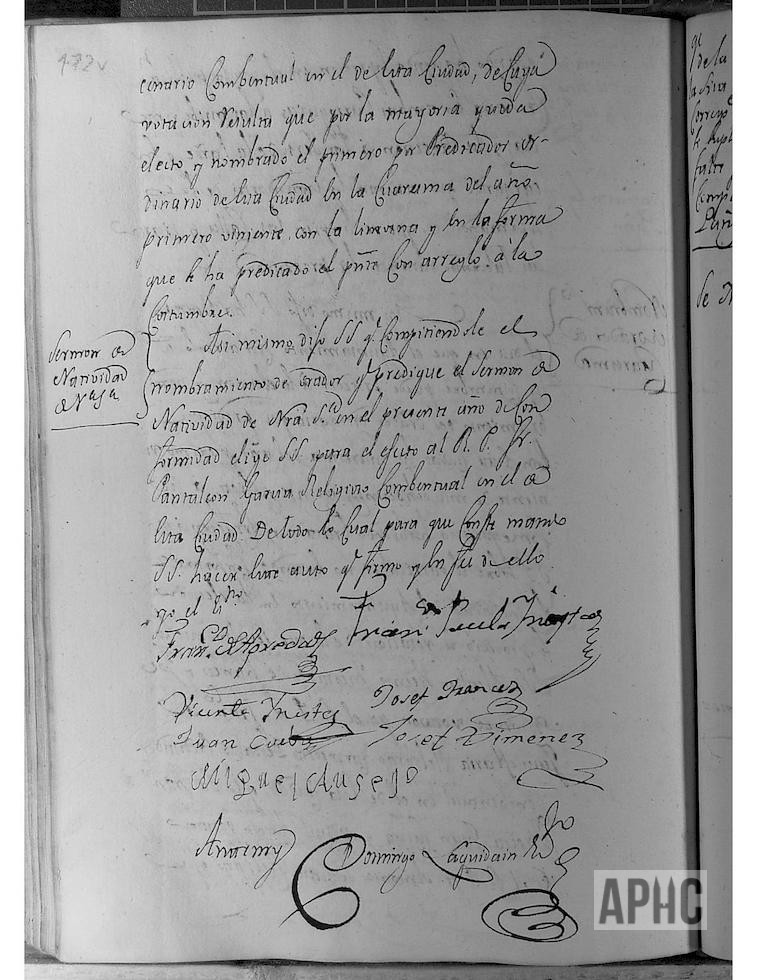 172v
cenario Combentual en el de esta Ciudad, de Cuya
votacion Resulta que por la mayoria queda
electo y nombrado el primero por Predicador or-
dinario de esta Ciudad en la Cuaresma del año
primero viniente, con la limosna y en la forma
que se ha predicado el pñte Con arreglo â la
Costumbre.
Sermon de
Natividad
de Nª Sª
Asi mismo dijo SS qe Compitiendole el
nombramiento de orador qe predique el Sermon de
Natividad de Nra Sª en el presente año de Con
formidad elije SS. para el efecto al R. P. Fr.
Pantaleon Garcia Religioso Combentual en el de
esta Ciudad. De todo lo Cual para que Conste mando
SS. hacer este auto qe firmo y en fee de ello
yo el Esno
Franco de
Vicente Treste
Josef Frances
Juan
Josef Ximenez
Miguel Ausejo
Antemy
Domingo Laquidain Esno
APHC